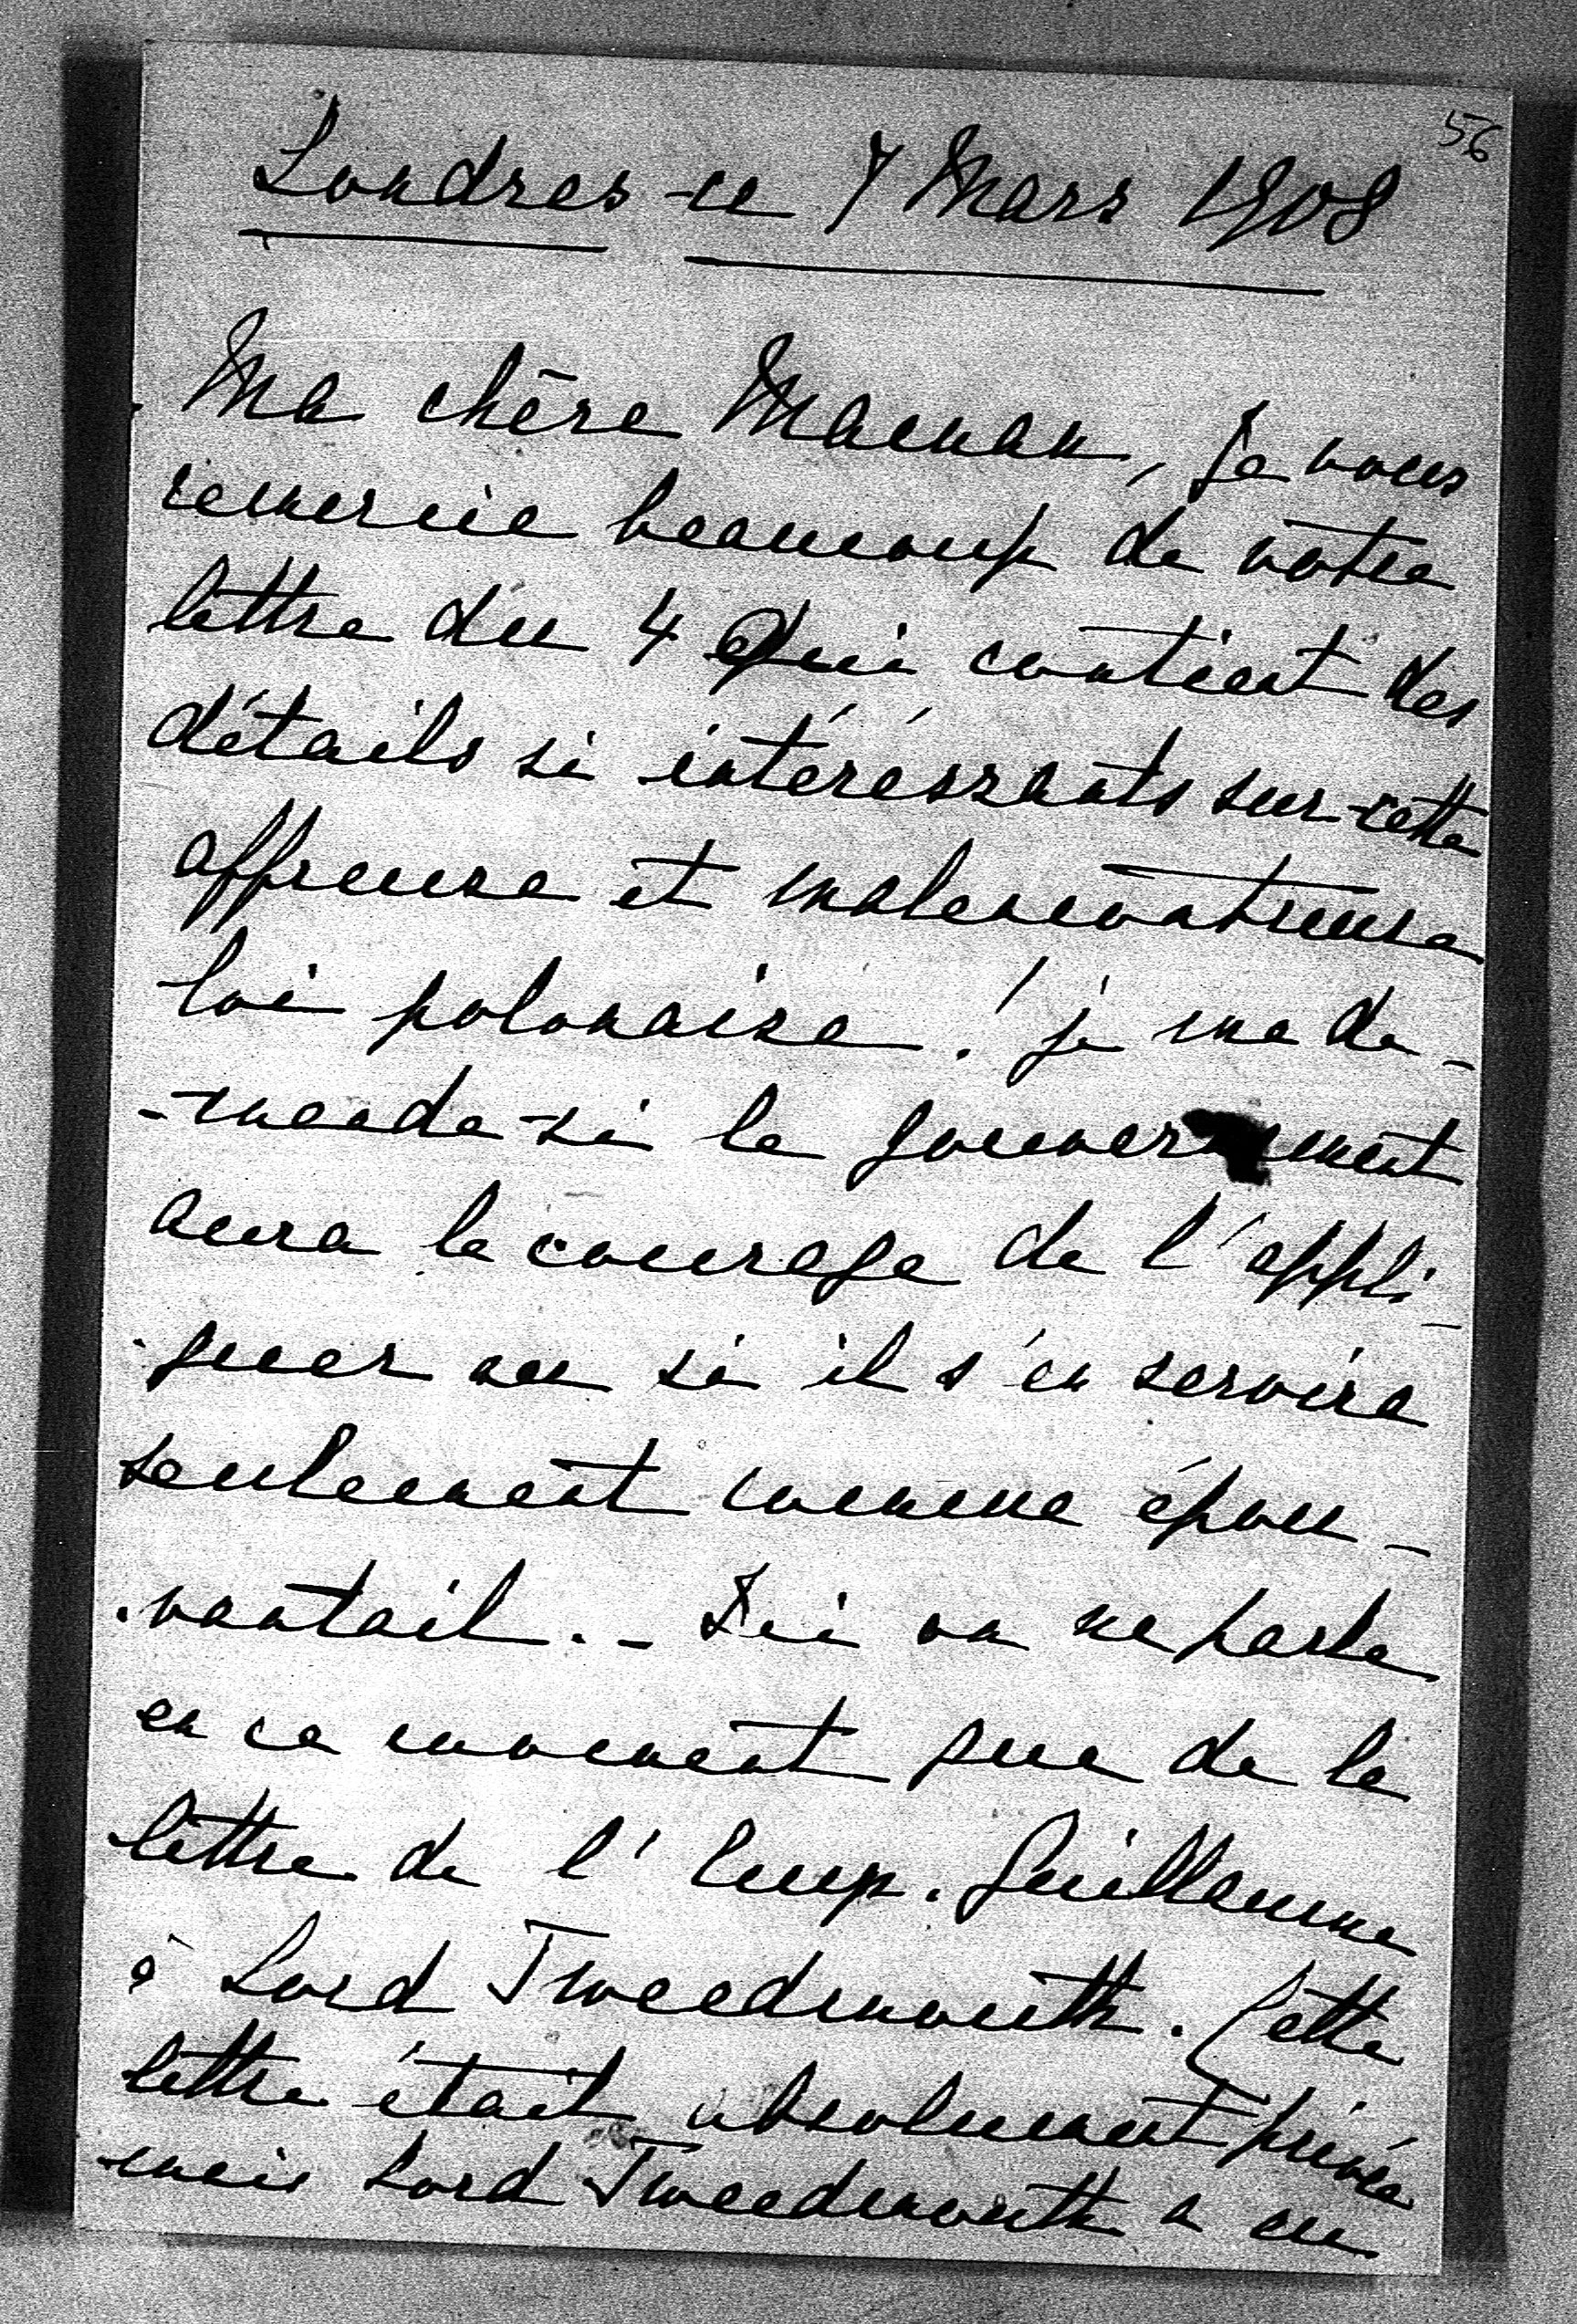 56
Londres ce 7 Mars 1908
Ma chère Maman, Je vous
remercie beaucoup de votre
lettre du 4 qui contient des
détails si intéressants sur cette
affreuse et malencontreuse
loi polonaise! je me de-
-mande si le gouvernement
aura le courage de l'appli-
quer ou si il s'en servira
seulement comme épou-
vantail. - Ici on ne parle
en ce moment que de la
lettre de l'Emp. Guillaume
à Lord Tweedmouth. Cette
lettre était absolument privée
mais Lord Tweedmouth a eu